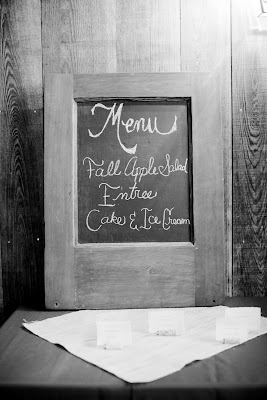 Menu
Fall Apple Salad
Entree
Cake & Ice Cream